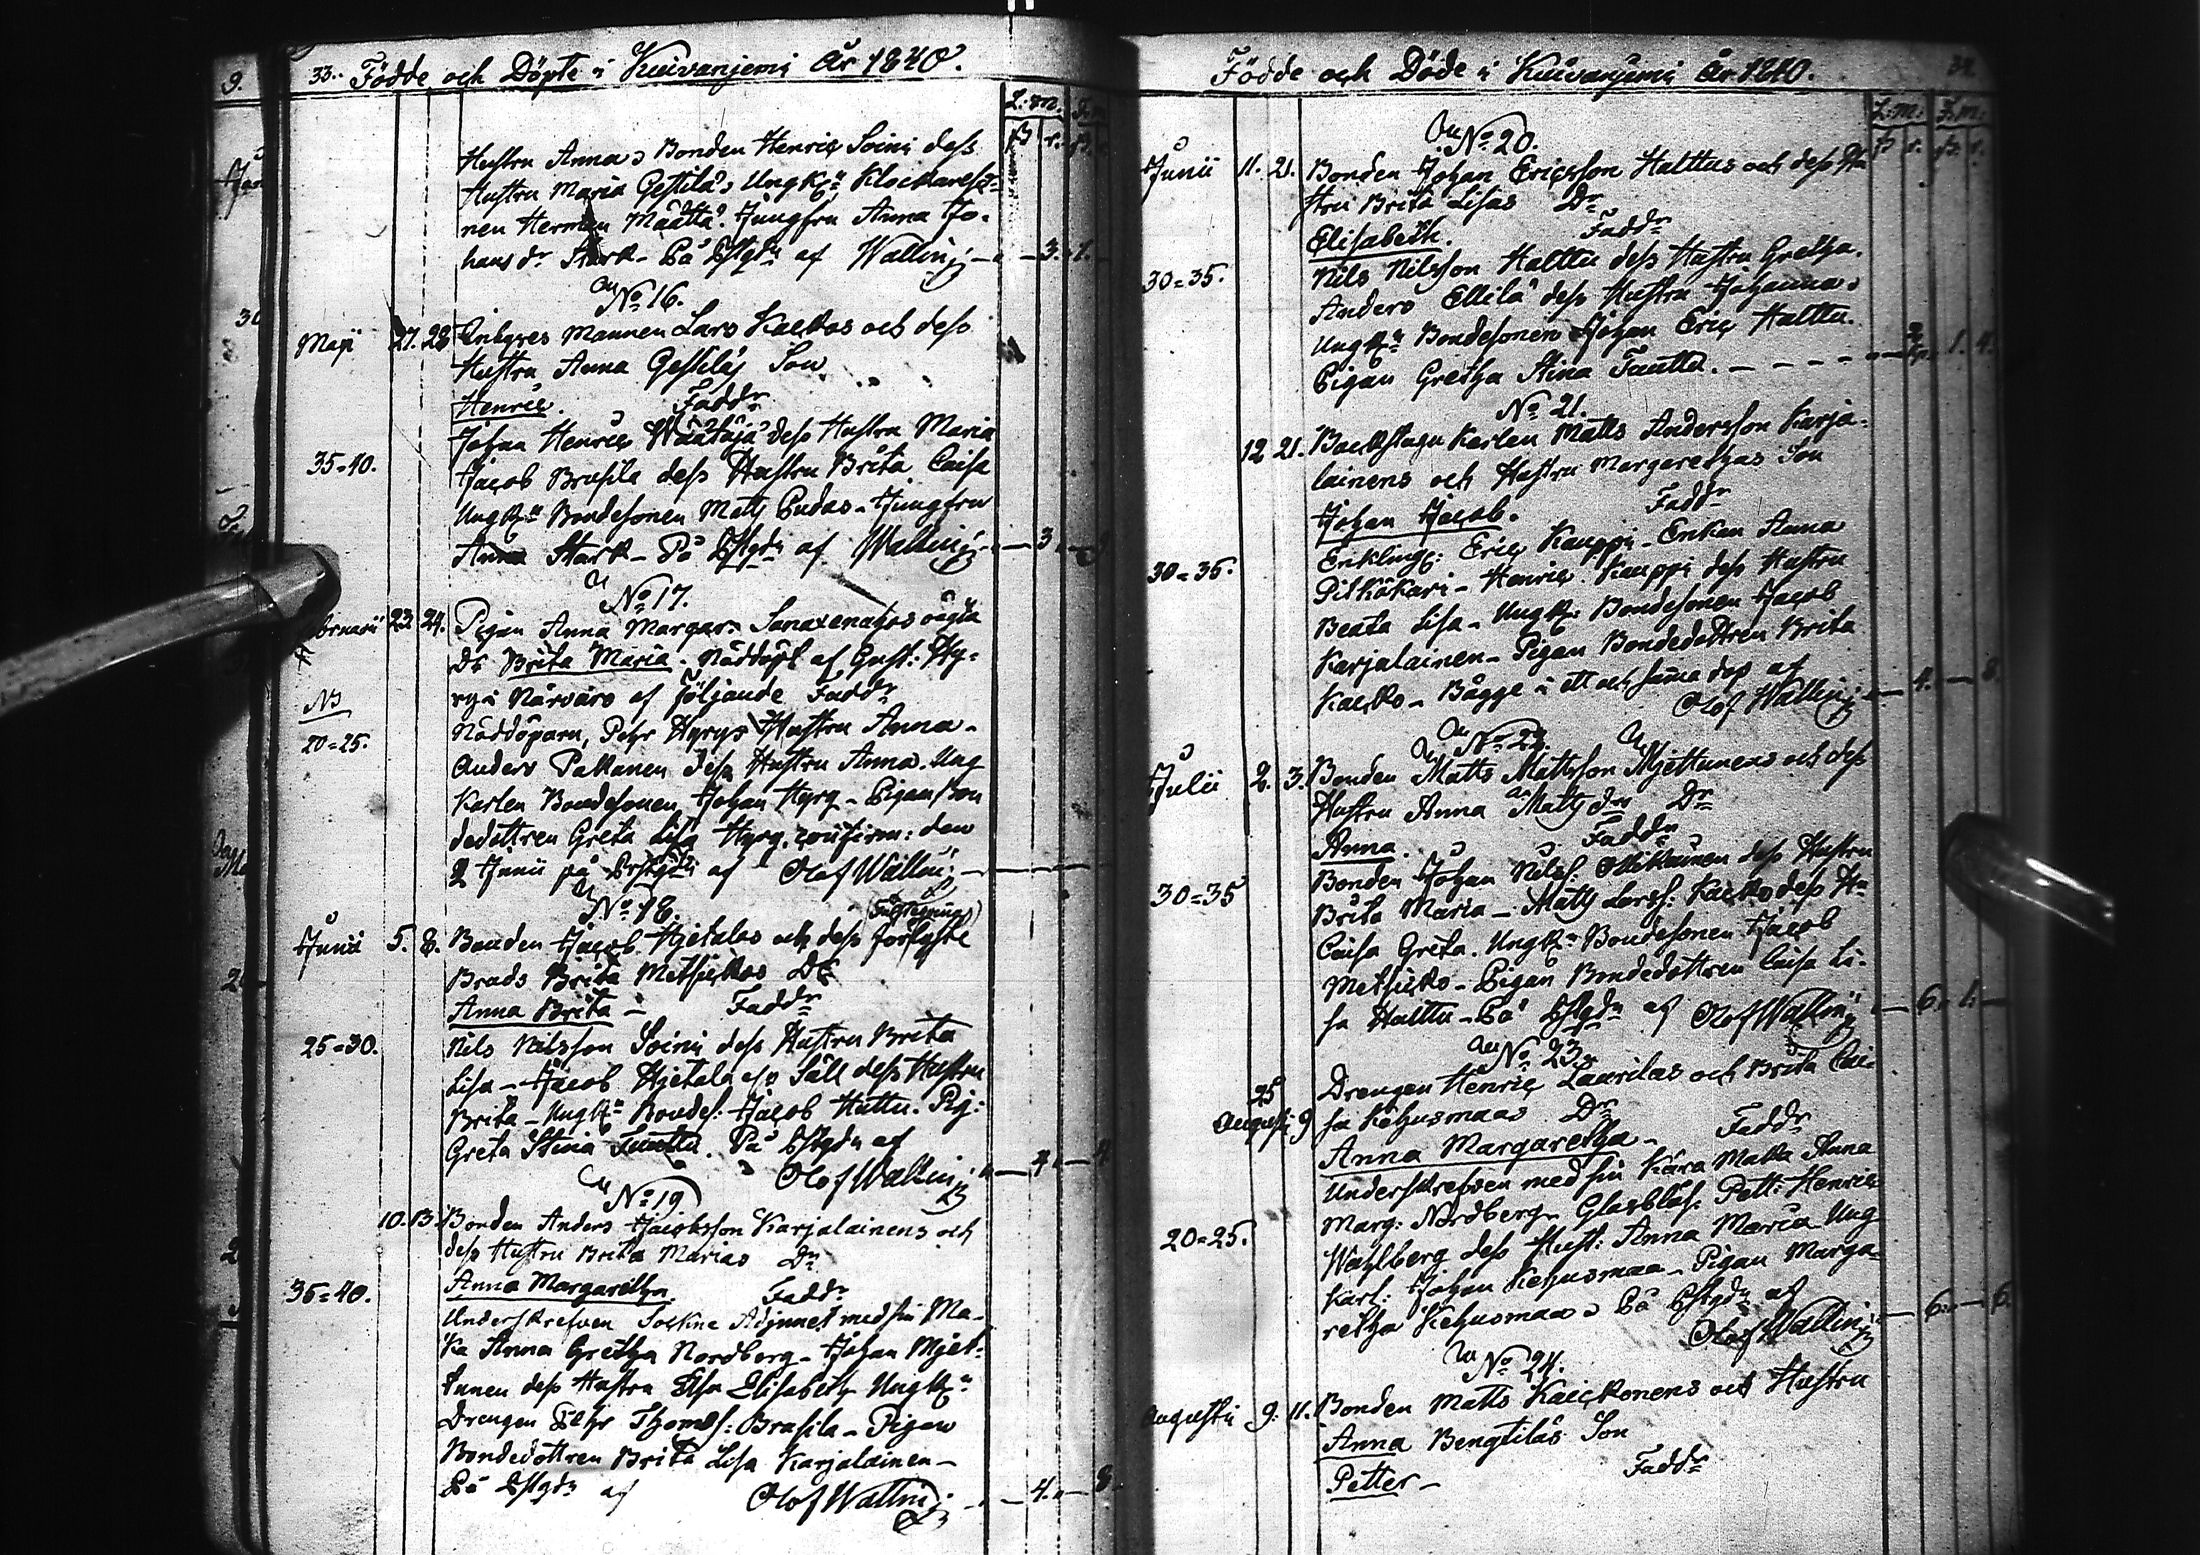 33. Födde och Döpte i Kuivanjemi År 1840.
L.m.
Hustru Anna, Bonden Henric Soini dess
Hustru Maria Gestilä, Ungk:n Klockareso-
nen Herman Määttä. Jungfru Anna Jo-
hansdr Stark - På Estgdn af Wallin - 3. 1.
No 16.
Maji 27. 28 Lars Kaickos och dess
Hustru Anna Gestiläs Son
Henric. Faddr
35=40. Johan Henric Määttäjä dess Hustru Maria
Jacob Brusila dess Hustru Brita Caisa
Ungk:n Bondesonen Matts Pudas - Jungfru
Anna Stark - På Estgdn af Wallin - 3.
No 17.
23. 24. Pigan Anna Margar. oägta
Dr Brita Maria. Nöddöpt af Gust: Hy-
ry i Närvaro af Följande Faddr
NB
20=25. Nöddöparn, Pehr Hyrys Hustru Anna -
Anders Pakanen dess Hustru Anna. Ung
Karlen Bondesonen Johan Hyry - Pigan Bon
dedottren Greta Lisa Hyry. confirm: den
2 Junii på af Olof Wallin
No 18.
Junii 5. 8. Bonden Jacob Hjetalas och dess
Bruds Brita Metsickos Dr
Anna Brita - Faddr
25=30. Nils Nilsson Soini dess Hustru Brita
Lisa - Jacob Hjetala dess Hustru
Brita - Ungk:n Bondes: Jacob Huttu. Pig:
Greta Stina Tuutta. På Estgdn af
Olof Wallin - 4.
No 19
10. 13. Bonden Anders Jacobsson Karjalainens och
dess Hustru Brita Marias Dr
Anna Margaretha. Faddr
35=40. Underskrefven Sockne Adjunct med sin Ma-
ka Anna Gretha Nordberg - Johan Mjet-
tunen dess Hustru Elsa Elisabeth Ungk:n
Drengen Pehr Thomas: Brasila - Pigan
Bondedottren Brita Lisa Karjalainen -
På Estgdn af Olof Wallin - 4. 8
Födde och Döde i Kuivanjemi År 1840. 34.
L.m. L.m.
No 20.
Junii 11. 21. Bonden Johan Ericsson Halttus och dess Hu
stru Brita Lisas Dr
Elisabeth. Faddr
30=35. Nils Nilsson Halttu dess Hustru Gretha.
Anders Ellilä dess Hustru Johanna,
Ungk:n Bondesonen Johan Eric Halttu.
Pigan Gretha Stina Tuutta. - - - - 1. 4.
No 21.
12 21. Backstugu Karlen Matts Andersson Karja-
lainens och Hustru Margarethas Son
Johan Jacob. Faddr
30=35. Enkling: Eric Kauppi - Enkan Anna
Pitkökari - Henric Kauppi dess Hustru
Beata Lisa - Ungk: Bondesonen Jacob
Karjalainen - Pigan Bondedottren Brita
Kaicko - Bägge i ett och samma dop af
Olof Wallin - 4. 8
No 22.
Julii 2. 3. Bonden Matts Mattsson Mjettunens och dess
Hustru Anna Mattsdr Dr
Anna. Faddr
30=35 Bonden Johan Nils: Ollikainen dess Hustru
Brita Maria - Matts Larss: Kaicko dess H:u
Caisa Greta. Ungk:n Bondesonen Jacob
Metsicko - Pigan Bondedottren Caisa Li-
sa Halttu - På Estgdn af Olof Wallin - 6. 1.
No 23.
25
Augusti 9 Drengen Henric Laurilas och Brita Cai-
sa Kehusmaas Dr
Anna Margaretha - Faddr
20=25. Underskrefven med sin Kära Maka Anna
Marg: Nordberg - Glasblås: Pett: Henric
Wahlberg dess Hust: Anna Maria - Ung
Karl: Johan Kehusmaa - Pigan Marga-
retha Kehusmaa, På Estgdn af
Olof Wallin - 6. 6.
No 24.
Augusti 9. 11. Bonden Matts Kaickonens och Hustru
Anna Bengtiläs Son
Petter - Faddr